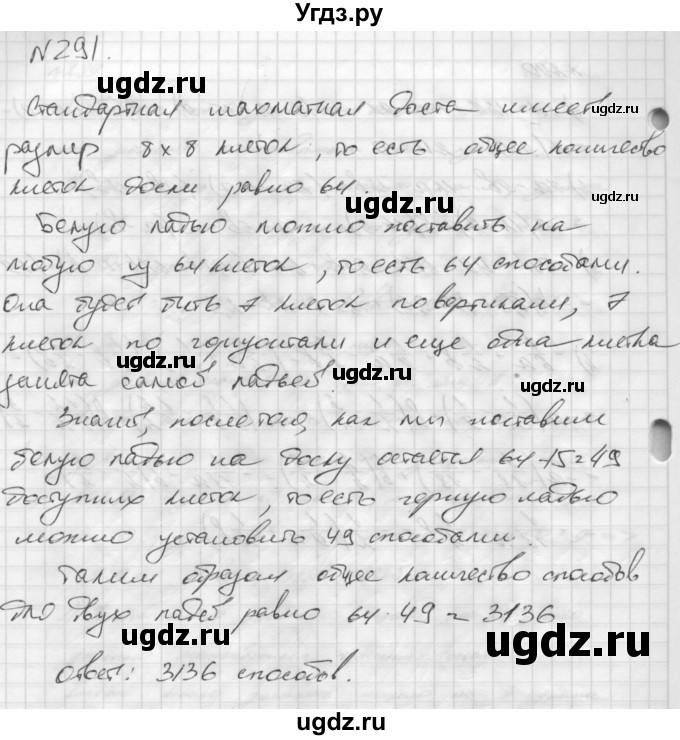 Угдз.ру
N291.
ugdz.ru
Стандартная шахматная доска имеет
размер 8 x 8 клеток, то есть общее количество
ugdz.ru
клеток доски равно 64.
ugdz.ru
Белую ладью можно поставить на
любую из 64 клеток, то есть 64 способами.
Она будет бить 7 клеток по вертикали, 7
клеток по горизонтали и еще одна клетка
ugdz.ru
занята самой ладьей.
Значит, после того, как мы поставим
белую ладью на доску остается 64-15=49
ugdz.ru
доступных клеток, то есть черную ладью
можно установить 49 способами.
Таким образом общее количество способов
для двух ладей равно 64·49=3136
ugdz.ru
ugdz.ru
Ответ: 3136 способов.
ugdz.ru